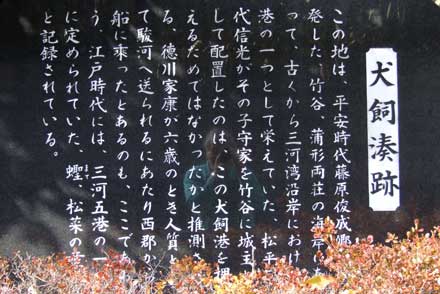 犬飼湊跡
この地は、平安時代藤原俊成卿が
発した、竹谷、蒲形両荘の海岸にあ
って、古くから三河湾沿岸におけ
港の一つとして栄えていた。松平
代信光がその子守家を竹谷に城主
して配置したのは、この犬飼港を押
えるためではなかったか、推測さ
る、徳川家康が六歳のとき人質と
て駿河へ送られるにあたり西郡か
船に乗ったとあるのも、ここであ
う、江戸時代には、三河五港の一
に定められていた、蟶、松菜の
と記録されている。